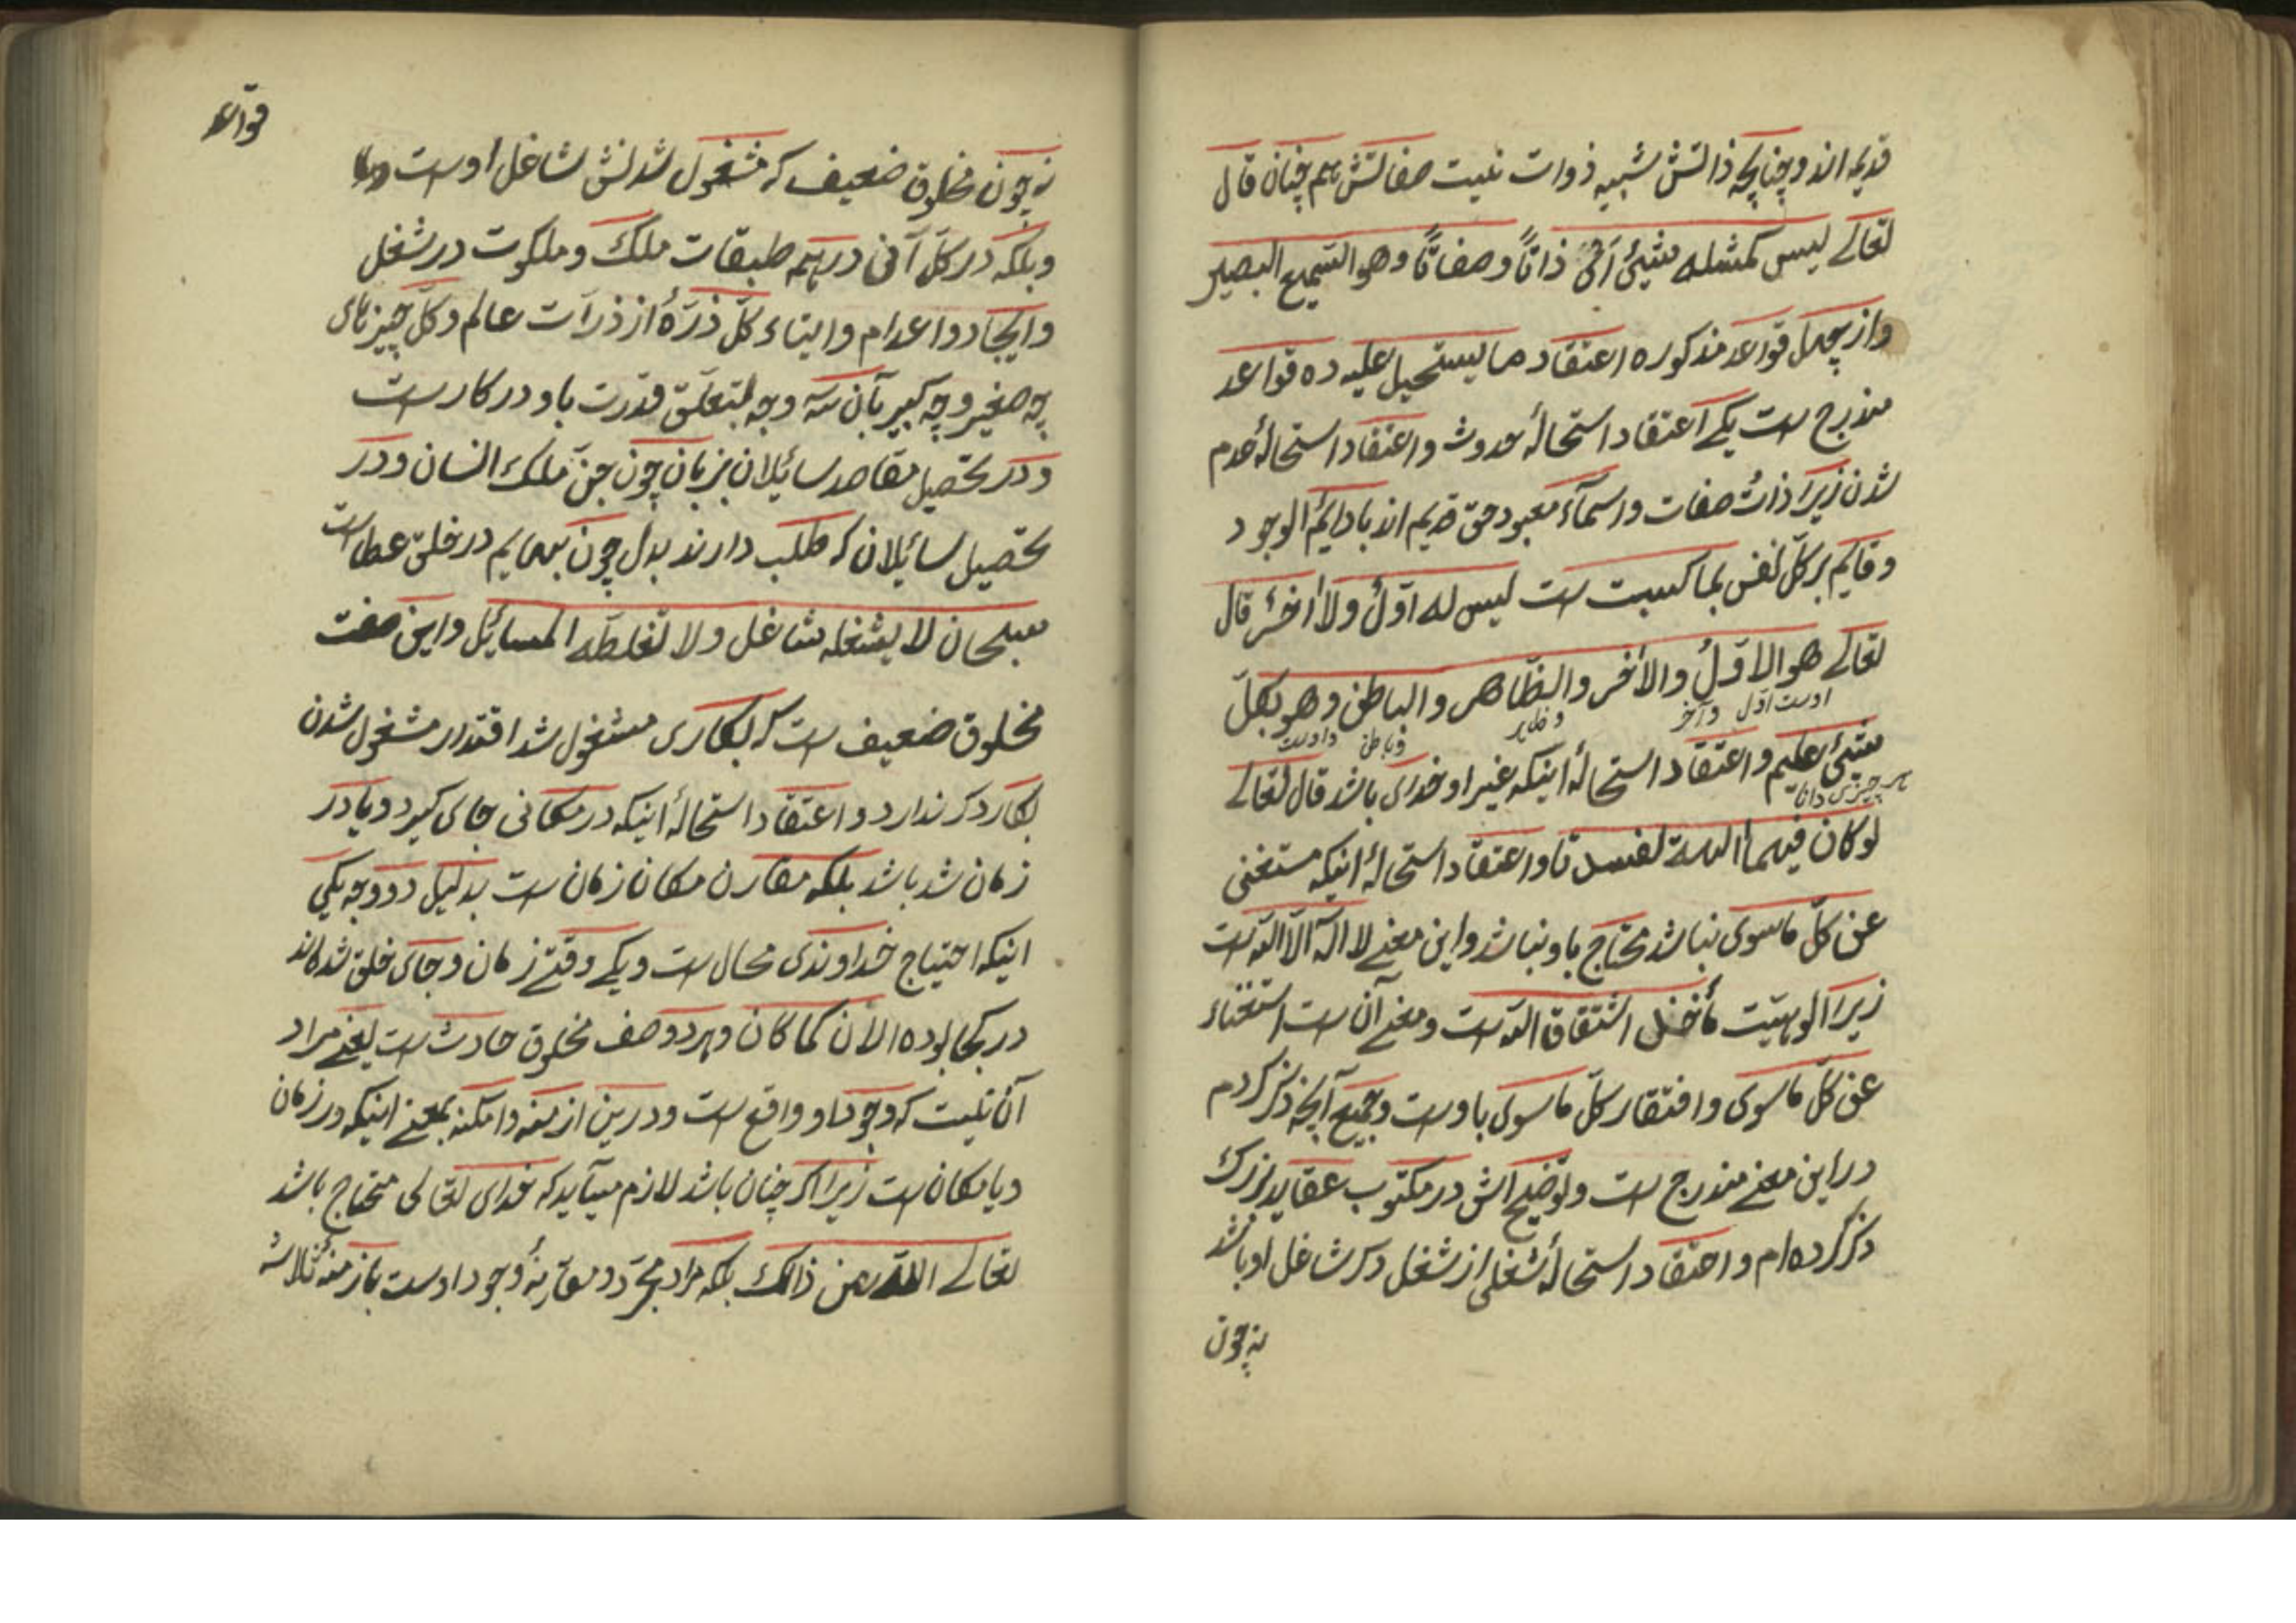 قدیم اند و چنانچه ذاتش شبیه ذوات نیست صفاتش هم چنان قال
تعالے لیس کمثله شیئ اَیْ ذاتًا وصفاتًا وهو السّمیع البصیر
واز چهل قواعد مذکوره اعتقاد ما یستحیل علیه ده قواعد
مندرج ست یکے اعتقاد استحالهٔ حدوث واعتقاد استحالهٔ عدم
شدن زیرا ذات صفات واسمآء معبود حق قدیم اند بادایم الوجود
وقایم بر کلّ نفس بما کسبت ست لیس له اوّلٌ ولا أخرٌ قال
تعالے هو الاوّلُ والأخر والظّاهر والباطن وهو بکلّ
اوست اوّل وآخر وظاهر وباطن واوست
شیئ علیم واعتقاد استحالهٔ اینکه غیر او خدای باشد قال تعالے
بهر چیزی دانا
لو کان فیهما الهة لفسدتا واعتقاد استحالهٔ اینکه مستغنی
عن کلّ ماسوی نباشد محتاج باو نباشد واین معنے لا اله الّا اللّه ست
زیرا الوهیّت مأخذ اشتقاق اللّه ست ومعنے آن ست استغناء
عن کلّ ماسوی وافتقار کلّ ماسوی باوست وجمیع آنچه ذکر کردم
دراین معنے مندرج ست وتوضیح اش در مکتوب عقاید بزرک
ذکر کرده ام واعتقاد استحالهٔ شغلی از شغل دکر شاغل او باشد
نه چون
قواعد
نه چون مخلوق ضعیف که مشغول شدنش شاغل اوست
وبلکه در کلّ آنی در همه طبقات ملک وملکوت در شغل
وایجاد واعدام وابقاء کلّ ذرّهٔ از ذرّات عالم وکلّ چیزهای
چه صغیر وچه کبیر بآن سّه وجه بتعلّق قدرت باو درکار ست
ودر تحصیل مقاصد سائیلان بزبان چون جنّ ملک انسان ودر
تحصیل سائیلان که طلب دارند بدل چون بهایم در خلق عطاست
سبحان لا یشغله شاغل ولا تغلطه المسائیل واین صفت
مخلوق ضعیف ست که بکاری مشغول شد اقتدار مشغول شدن
بکار دکر ندارد واعتقاد استحالهٔ اینکه در مکانی جای کیرد ویا در
زمان شد باشد بلکه مقارن مکان زمان ست بدلیل دو وجه یکی
اینکه احتیاج خداوندی محال ست ویکے وقتے زمان وجای خلق شده اند
در کجا بوده الأن کما کان وهر دو وصف مخلوق حادث ست یعنے مراد
آن نیست که وجود او واقع ست ودر بین ازمنه وامکنه بمعنے اینکه در زمان
ویا مکان ست زیرا اکر چنان باشد لازم میآید که خدای تعالی محتاج باشد
تعالے اللّه عن ذالک بلکه مراد مجرّد مقارنهٔ وجود اوست بازمنهٔ ثلاثه